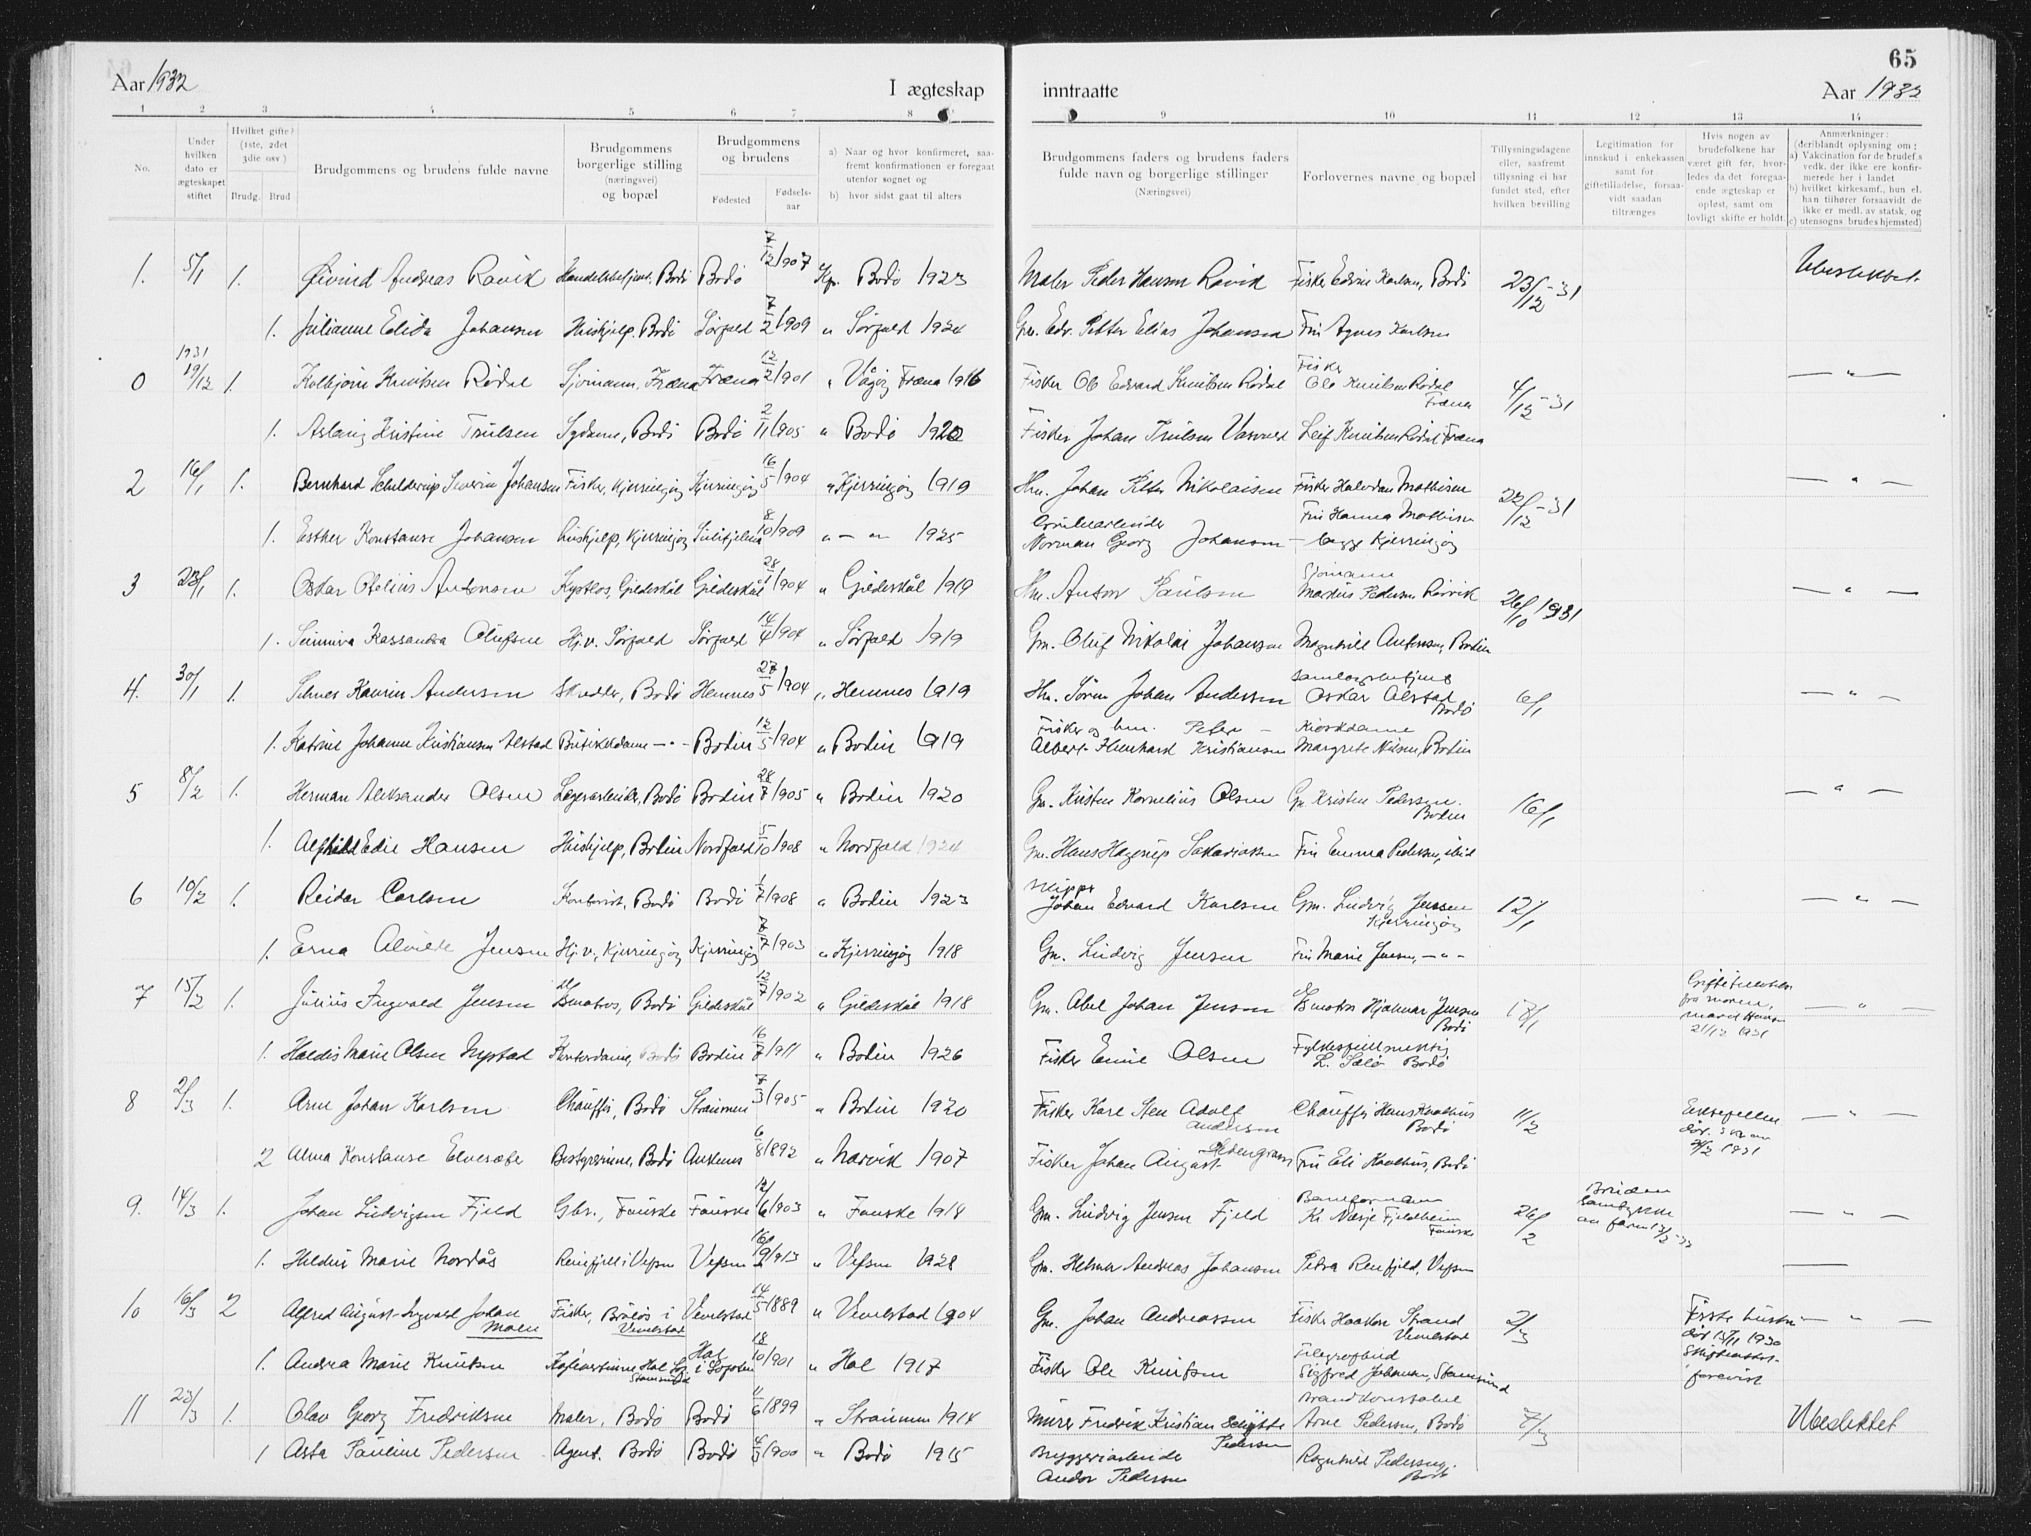 65
Aar 1932
I ægteskap
inntraatte
Aar 1932
1 2 3 4 5 6 7 8 9 10 11 12 13 14
No.
Under hvilken dato er ægteskapet stiftet
Hvilket gifte? (1ste, 2det 3die osv.)
Brudg. Brud
Brudgommens og brudens fulde navne
Brudgommens borgerlige stilling (næringsvei) og bopæl
Brudgommens og brudens
Fødested
Fødsels-aar
a) Naar og hvor konfirmeret, saafremt konfirmationen er foregaat utenfor sognet og
b) hvor sidst gaat til alters
Brudgommens faders og brudens faders fulde navn og borgerlige stillinger (Næringsvei)
Forlovernes navne og bopæl
Tillysningsdagene eller, saafremt tillysning ei har fundet sted, efter hvilken bevilling
Legitimation for innskud i enkekassen samt for giftetilladelse, forsaavidt saadan tiltrænges
Hvis nogen av brudefolkene har været gift før, hvorledes da det foregaaende ægteskap er opløst, samt om lovligt skifte er holdt.
Anmærkninger: (deriblandt oplysning om:
a) Vakcination for de brudef.s vedk. der ikke ere konfirmerede her i landet
b) hvilket kirkesamf., hun el. han tilhører forsaavidt de ikke er medl. av statsk. og
c) utensogns brudes hjemsted)
1. 5/1 1. Øivind Andreas Ravik Handelsbetjent, Bodø Bodø 7/12 1907 Kp. Bodø 1923 Maler Peder Hansen Ravik Fisker Edvin Karlsen, Bodø 23/12-31 Ubeslektet
1. Julianne Elida Johansen Hushjelp, Bodø Sørfold 7/2 1909 " Sørfold 1924 Gm. Edv. Petter Elias Johansen Fru Agnes Karlsen
0 1931 19/12 1. Kolbjørn Knutsen Rødal Sjømann, Fræna Fræna 12/2 1901 " Vågøy Fræna 1916 Fisker Ole Edvard Knutsen Rødal Fisker Ole Knutsen Rødal Fræna 4/12-31 — " —
1. Aslaug Kristine Trulsen Sydame, Bodø Bodø 2/11 1905 " Bodø 1920 Fisker Johan Trulsen Leif Knutsen Rødal Fræna
2 16/1 1. Bernhard Schelderup Severin Johansen Fisker, Kjerringøy Kjerringøy 16/5 1904 " Kjerringøy 1919 Hm. Johan Petter Nikolaisen Fisker Halvdan Mathisen 22/12-31 — " —
1. Esther Konstanse Johansen Hushjelp, Kjerringøy Sulitjelma 8/10 1909 " — " — 1925 Grubearbeider Norman Georg Johansen Fru Hanna Mathisen — begge Kjerringøy
3 23/1 1. Oskar Otelius Antonsen Gildeskål Gildeskål 28/1 1904 " Gildeskål 1919 Hm. Anton Paulsen Sjømann Markus Pedersen Rørvik 26/10 1931 — " —
1. Sunniva Kassandra Olufsen Hj.v. Sørfold Sørfold 14/4 1904 " Sørfold 1919 Gm. Oluf Nikolai Johansen Magnhild Antonsen, Bodin
4. 30/1 1. Andersen Skredder, Bodø Hemnes 27/5 1904 " Hemnes 1919 Hm. Søren Johan Andersen Oskar Alstad Bodø 6/1 — " —
1. Katrine Johanne Kristiansen Alstad Butikkdame — " — Bodin 12/5 1904 " Bodin 1919 Fisker og hm. Peter Albert Kristiansen Kioskdame Margrete Nilsen, Bodin
5 8/2 1. Herman Aleksander Olsen Lagerarbeider, Bodø Bodin 28/7 1905 " Bodin 1920 Gm. Kristen Kornelius Olsen Gm. Kristen Pedersen. Bodin 16/1 — " —
1. Alfhild Edie Hansen Hushjelp, Bodin Nordfold 5/10 1908 " Nordfold 1924 Gm. Hans Hagerup Sakariassen Fru Emma Pedersen, ibid
6 10/2 1. Reidar Carlsen Kontorist, Bodø Bodø 1/7 1908 " Bodin 1923 Skipper Johan Edvard Karlsen Gm. Ludvig Jensen Kjerringøy 12/1 — " —
1. Erna Alvilde Jensen Hj.v., Kjerringøy Kjerringøy 7/7 1903 " Kjerringøy 1918 Gm. Ludvig Jensen Fru Marie Jensen, — " —
7 15/2 1. Julius Ingvald Jensen Bodø Gildeskål 12/7 1902 " Gildeskål 1918 Gm. Abel Johan Jensen Hjalmar Jensen Bodø 18/1 21/12 1931 — " —
1. Haldis Marie Olsen Nystad Kontordame, Bodø Bodin 16/7 1911 " Bodin 1926 Fisker Emil Olsen L. Sælø Bodø
8 2/3 1. Arne Johan Karlsen Chauffør, Bodø Straumen 7/3 1905 " Bodin 1920 Fisker Karl Sten Adolf Andersen Chauffør Hans Bodø 11/2 — " —
2 Alma Konstanse Bestyrerinne, Bodø Ankenes 6/8 1892 " Narvik 1907 Fisker Johan August Fru Eli Bodø
9. 14/3 1. Johan Ludvigsen Fjeld Gbr., Fauske Fauske 12/6 1903 " Fauske 1918 Gm. Ludvig Jensen Fjeld Kr. Næsje Fjeldheim Fauske 26/2 Bruden samtykke av faren — " —
1. Marie Nordås Renfjell i Vefsn Vefsn 1913 " Vefsn 1928 Gm. Helmer Andreas Johansen Petra Renfjeld, Vefsn —
10 16/3 2 Alfred August Ingvald Johan Moen Fisker, i Vevelstad Vevelstad 14/5 1889 " Vevelstad 1904 Gm. Johan Andreassen Fisker Haakon Strand Vevelstad 2/3 Første hustru død 1930 Skifteattest forevist — " —
1. Andrea Marie Knutsen Hol i Lofoten 18/10 1901 " Hol 1917 Fisker Ole Knutsen Sigfred Johansen, Stamsund
11 23/3 1. Olav Georg Fredriksen Maler, Bodø Bodø 11/6 1899 " Straumen 1914 Murer Fredrik Kristian Schytte Pedersen Brandkonstabel Arne Pedersen, Bodø 7/3 Ubeslektet
1 Asta Pauline Pedersen Agent. Bodø Bodø 1900 " Bodø 1915 Bryggeriarbeider Andor Pedersen Ragnhild Pedersen, Bodø